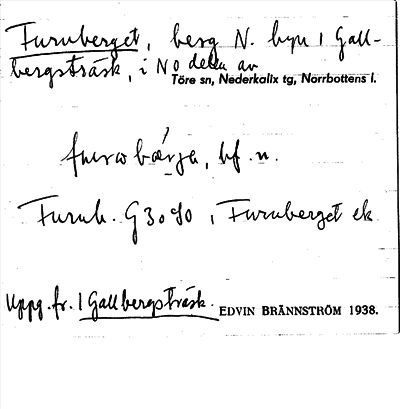 Furuberget, berg N. byn 1 Gall-
bergsträsk, i NO delen av
Töre sn, Nederkalix tg, Norrbottens l.
furobærje, bf. n.
Furub. G30 90, Furuberget ek
Uppg. fr. 1 Gallbergsträsk. EDVIN BRÄNNSTRÖM 1938.